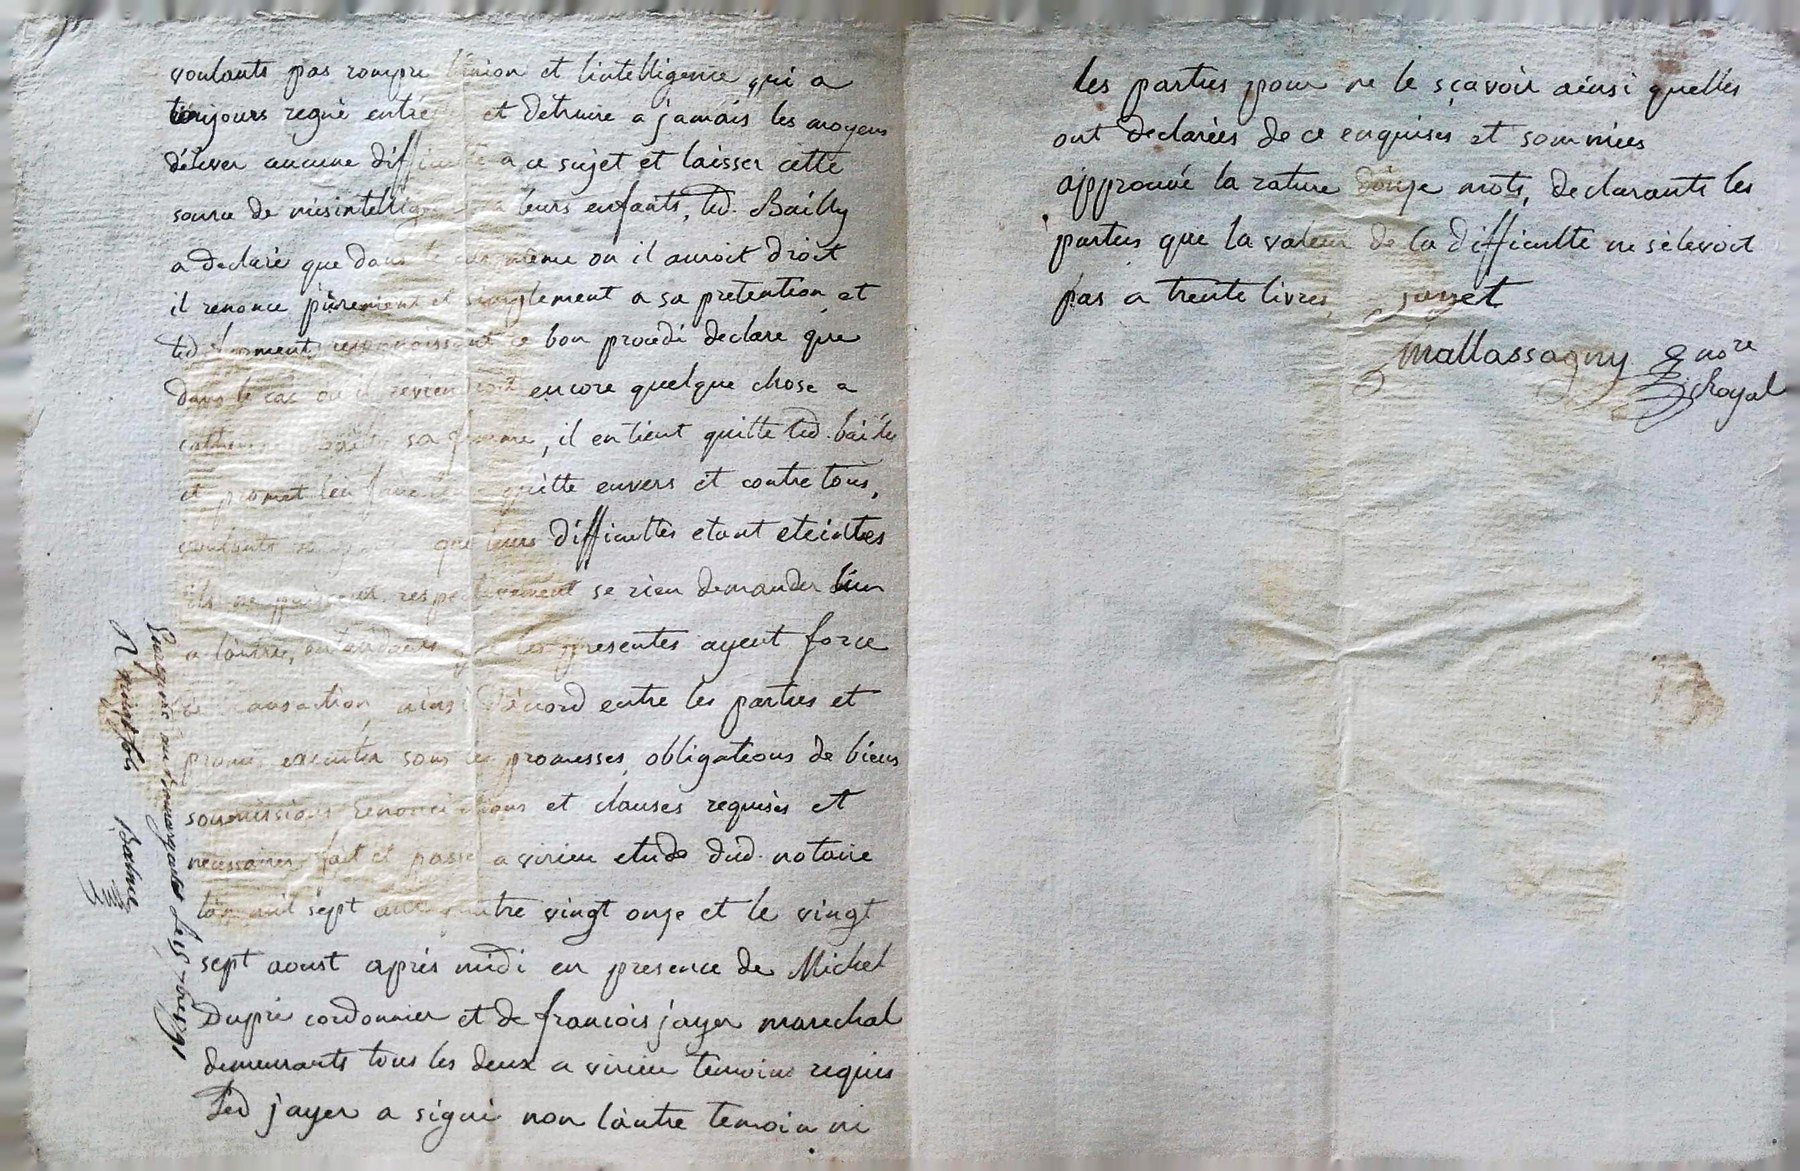 voulants pas rompre l'union et l'intelligence qui a
toujours regné entre et détruire a jamais les moyens
déléver aucune difficulté a ce sujet et laisser cette
source de mésintelligence a leurs enfants, led. Bailly
a declaré que dans le cas même ou il auroit droit
il renonce purement et simplement a sa pretention et
led froment reconnoissant ce bon procedé declare que
dans le cas ou il reviendroit encore quelque chose a
bailly sa femme, il en tient quitte led. bailly
et promet l'en faire quitte envers et contre tous,
voulants que leurs difficultés etant eteintes
ils ne puissent respectivement se rien demander l'un
a l'autre, entendants que les presentes ayent force
de transaction, ainsi d'acord entre les parties et
promis executer sous les promesses, obligations de biens
soumissions renonciations et clauses requises et
necessaires, fait et passé a virieu etude dud. notaire
l'an mil sept cent quatre vingt onze et le vingt
sept aoust après midi en presence de Michel
Dupré cordonnier et de francois jayer marechal
demeurants tous les deux a virieu temoins requis
led jayer a signé non l'autre temoin ni
les parties pour ne le sçavoir ainsi quelles
ont declarées de ce enquises et sommées
approuvé la rature douze mots, declarants les
parties que la valeur de la difficulté ne s'elevoit
pas a trente livres, jayet
Mallassagny nore
Royal
R vingt sols